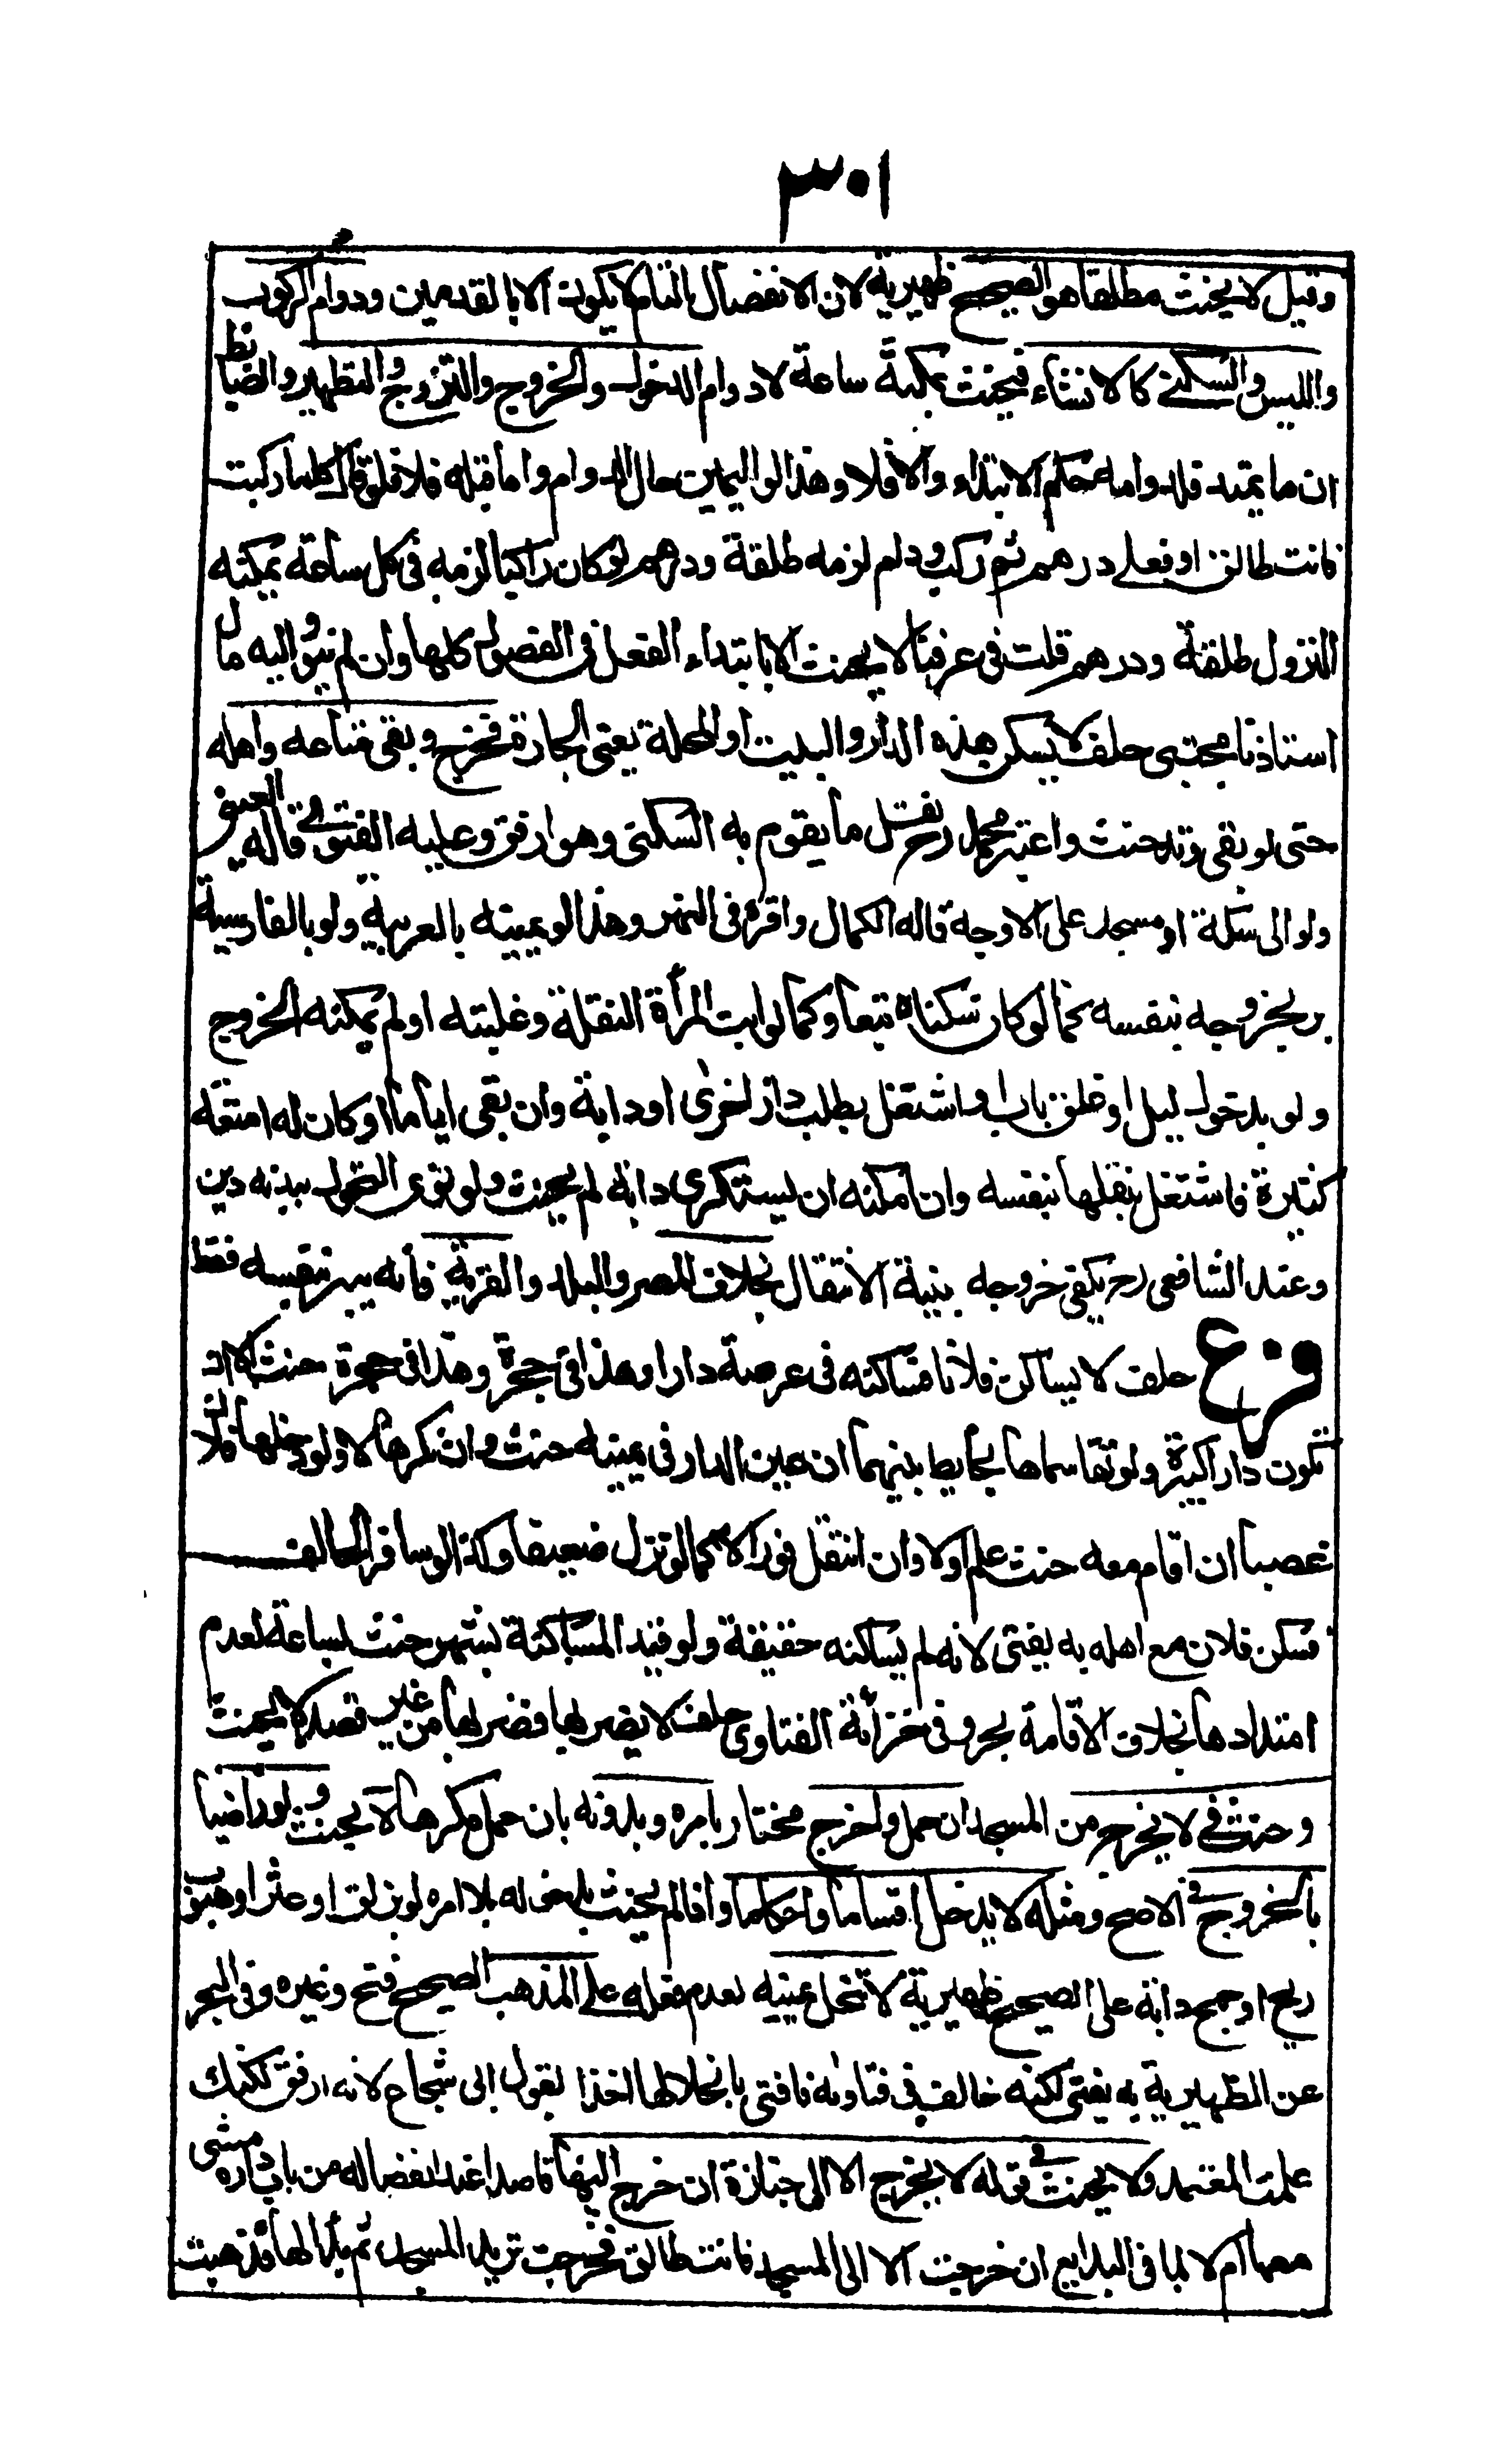 ٣٠١
وقيل لا يحنث مطلقا هو الصحيح ظهيرية لان الانفصال التام لا يكون الا بالقدمين ودوام الركوب
واللبس والسكنى كالانشاء فيحنث بمكثه ساعة لا دوام الدخول والخروج والتزوج والتطهير والضابط
ان ما يمتد فلدوامه حكم الابتداء والا فلا وهذا لو اليمين حال الدوام واما قبله فلا فلو قال كلما ركبت
فانت طالق او فعلي درهم ثم ركب ودام لزمه طلقة ودرهم لو كان راكبا لزمه في كل ساعة يمكنه
النزول طلقة ودرهم قلت في عرفنا لا يحنث الا بابتداء الفعل في الفصول كلها وان لم ينو واليه مال
استاذنا مجتبى حلف لا يسكن هذه الدار والبيت او المحلة يعنى الحارة فخرج وبقى متاعه واهله
حتى لو بقى وتد حنث واعتبر محمد رح نقل ما يقوم به السكنى وهو ارفق وعليه الفتوى قاله العينى
ولو الى سكة او مسجد على الاوجه قاله الكمال واقره فى النهر وهذا لو يمينه بالعربية ولو بالفارسية
بر بخروجه بنفسه كما لو كان سكناه تبعا وكما لو ابت المرأة النقلة وغلبته او لم يمكنه الخروج
ولو بدخول ليل او غلق باب او اشتغل بطلب دار اخرى او دابة وان بقى اياما او كان له امتعة
كثيرة فاشتغل بنقلها بنفسه وان امكنه ان يستكرى دابة لم يحنث ولو نوى التحول ببدنه دين
وعند الشافعى رح يكفى خروجه بنية الانتقال بخلاف المصر والبلد والقرية فانه يبر بنفسه فقط
فرع حلف لا يساكن فلانا فساكنه فى عرصة دار او هذا فى حجرة وهذا فى حجرة حنث الا ان
تكون دارا كبيرة ولو تقاسماها بحايط بينهما ان عين الدار فى يمينه حنث وان نكرها لا ولو دخلها فلان
غصبا ان اقام معه حنث علم اولا وان انتقل فورا لا كما لو نزل ضيفا وكذا لو سافر الحالف
فسكن فلان مع اهله به يفتى لانه لم يساكنه حقيقة ولو قيد المساكنة بشهر حنث بساعة لعدم
امتدادها بخلاف الاقامة بحر وفى خزانة الفتاوى حلف لا يضربها فضربها من غير قصد لا يحنث
وحنث فى لا يخرج من المسجد ان حمل واخرج مختارا بامره وبدونه بان حمل مكرها لا يحنث ولو راضيا
بالخروج فى الاصح ومثله لا يدخل اقساما واحكاما واذا لم يحنث بدخوله بلا امره لو بزلق او عثر او هبوب
ريح او جمح دابة على الصحيح ظهيرية لا تنحل يمينه لعدم فعله على المذهب الصحيح فتح وغيره وفى البحر
عن الظهيرية به يفتى لكنه خالف فى فتاويه فافتى بانحلالها اخذا بقول ابى شجاع لانه ارفق لكنك
علمت المعتمد ولا يحنث فى قوله لا يخرج الا الى جنازة ان خرج اليها قاصدا عند انفصاله من باب داره مشى
معها ام لا لما فى البدايع ان خرجت الا الى المسجد فانت طالق فخرجت تريد المسجد ثم بدا لها فذهبت